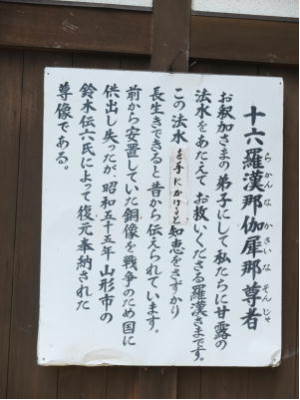 十六羅漢那伽犀那尊者
らかんなかさいなそんじゃ
お釈迦さまの弟子にして私たちに甘露の
法水をあたえてお救いくださる羅漢さまです。
この法水を手にかけると知恵をさずかり
長生きできると昔から伝えられています。
前から安置していた銅像を戦争のため国に
供出し失ったが、昭和五十五年山形市の
鈴木伝六氏によって復元奉納された
尊像である。